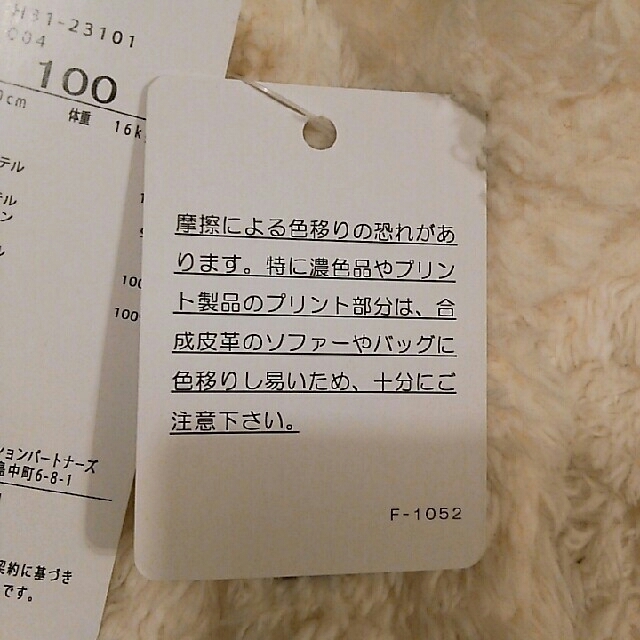 H31-23101
004
100
0cm 体重 16k
テル
テル
ン
100
100
ションパートナーズ
中町6-8-1
契約に基づき
です。
摩擦による色移りの恐れがあ
ります。特に濃色品やプリン
ト製品のプリント部分は、合
成皮革のソファーやバッグに
色移りし易いため、十分にご
注意下さい。
F-1052